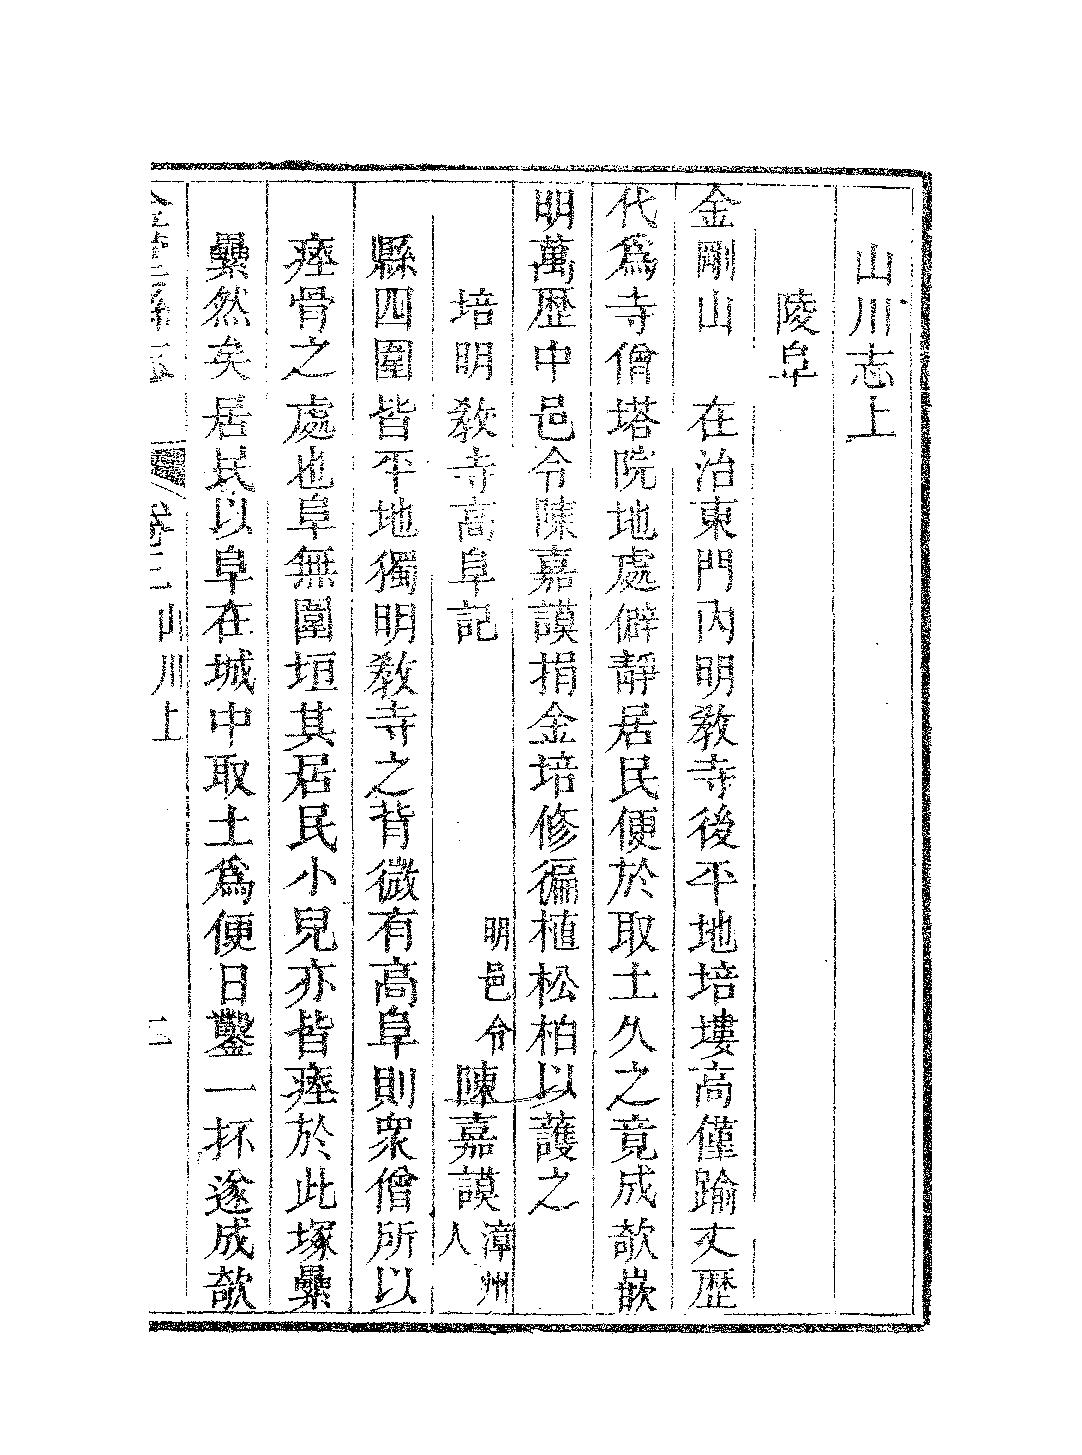 山川志上
陵阜
金剛山　在治東門內明教寺後平地培塿高僅踰丈歷
代爲寺僧塔院地處僻靜居民便於取土久之竟成欹嵌
明萬歷中邑令陳嘉謨捐金培修徧植松柏以護之
培明教寺高阜記　明邑令陳嘉謨漳州人
縣四圍皆平地獨明教寺之背微有高阜則眾僧所以
瘞骨之處也阜無圍垣其居民小兒亦皆瘞於此塚纍
纍然矣居民以阜在城中取土爲便日鑿一抔遂成欹
志　卷二　山川上　二